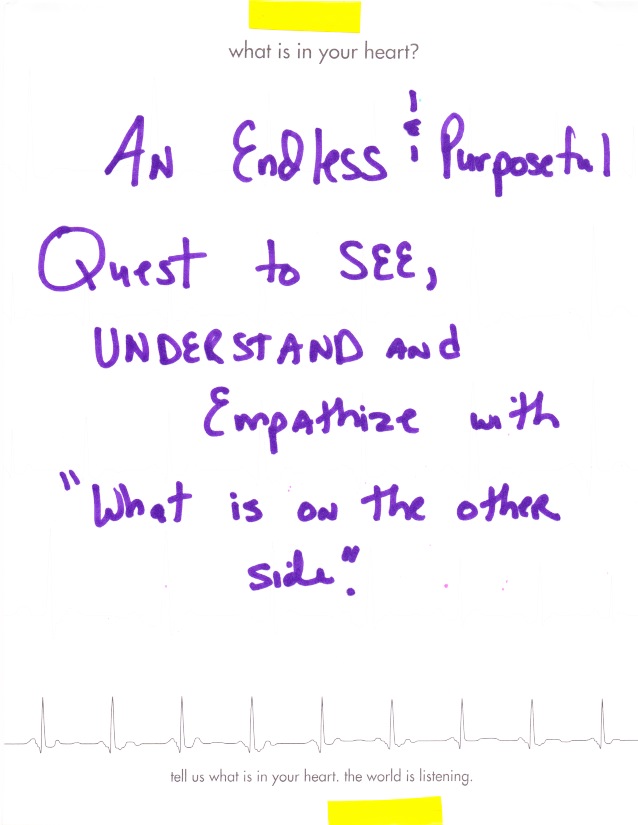 what is in your heart?
An Endless & Purposeful
Quest to SEE,
UNDERSTAND AND
Empathize with
"What is on the other
side".
tell us what is in your heart. the world is listening.